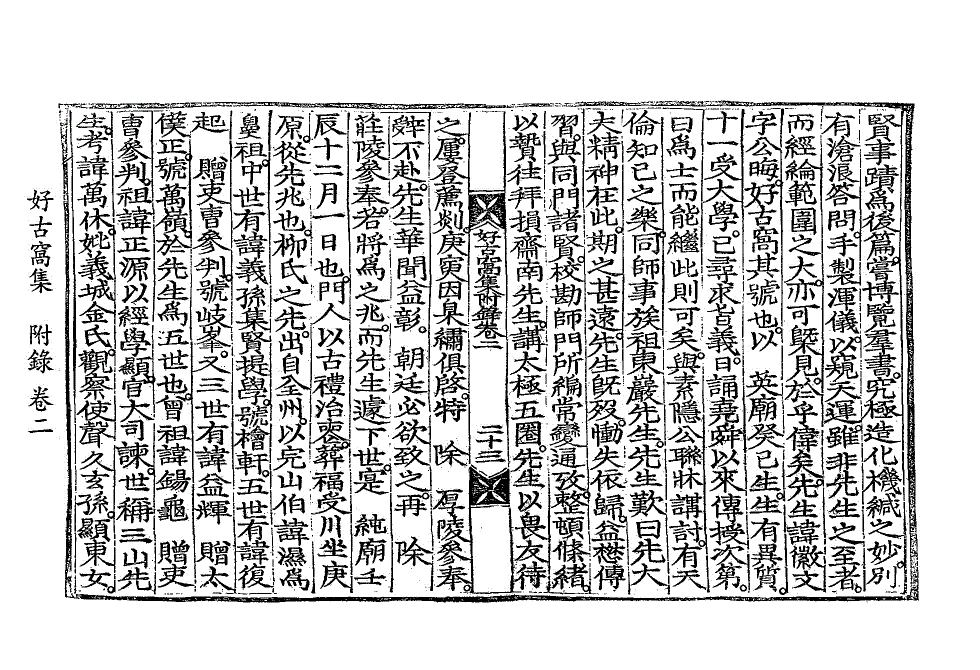 賢事蹟爲後篇嘗博覽羣書究極造化機緘之妙別
有滄浪答問手製渾儀以窺天運雖非先生之至者
而經綸範圍之大亦可槩見於乎偉矣先生諱徽文
字公晦好古窩其號也以　英廟癸巳生生有異質
十一受大學已尋求旨義日誦堯舜以來傳授次第
曰爲士而能繼此則可矣與素隱公聯牀講討有天
倫知己之樂同師事族祖東巖先生先生歎曰先大
夫精神在此期之甚遠先生旣歿慟失依歸益懋傳
習與同門諸賢校勘師門所編常變通攷整頓條緖
以贄往拜損齋南先生講太極五圈先生以畏友待
好古窩集附錄卷二　二十三
之屢登薦剡庚寅因臬繡俱啓特　除　厚陵參奉
辤不赴先生華聞益彰　朝廷必欲致之再　除
莊陵參奉若將爲之兆而先生遽下世寔　純廟壬
辰十二月一日也門人以古禮治喪葬福受川坐庚
原從先兆也柳氏之先出自全州以完山伯諱濕爲
鼻祖中世有諱義孫集賢提學號檜軒五世有諱復
起　贈吏曹參判號岐峯又三世有諱益輝　贈太
僕正號萬嶺於先生爲五世也曾祖諱錫龜　贈吏
曹參判祖諱正源以經學顯官大司諫世稱三山先
生考諱萬休妣義城金氏觀察使聲久玄孫顯東女
好古窩集　附錄　卷二